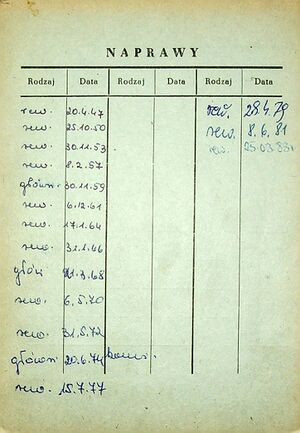 NAPRAWY
Rodzaj Data Rodzaj Data Rodzaj Data
rew. 20.4.47 rew. 28.4.79
rew. 25.10.50 rew. 8.6.81
rew. 30.11.53 rew. 25.03.83
rew. 8.2.57
główn. 30.11.59
rew. 6.12.61
rew. 17.1.64
rew. 31.1.66
główn 3.68
rew. 6.5.70
rew. 31.5.72
główn. 20.6.74
rew. 15.7.77